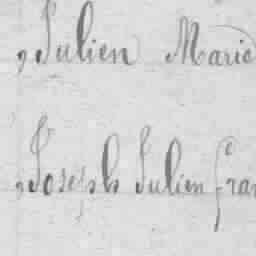 , Julien Marie
, Joseph Julien fran